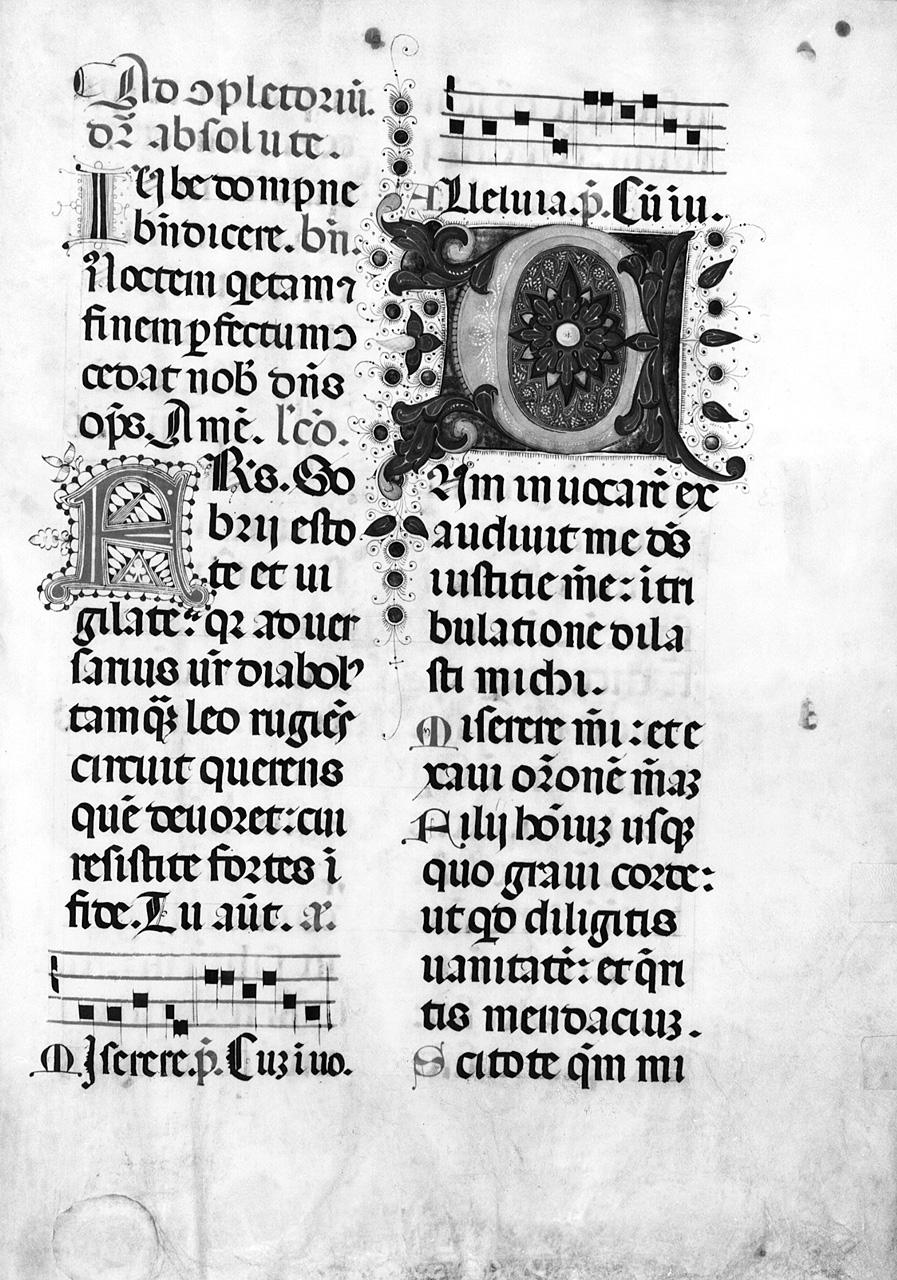 Ad ↄpletoriū.
dr̄ absolute.
Iube dompne
bn̄dicere. bn̄.
Noctem qetam ⁊
finem ꝑfectum ↄ
cedat nob̄ dn̄s
op̄s. Amē. lc̄o.
FRs. So
brij esto
te et ui
gilate: qꝛ aduer
sarius ur̄ diabolꝰ
tamqꝫ leo rugiēs
circuit querens
quē deuoret: cui
resistite fortes ī
fide. Tu aūt. a.
Miserere. p̄. Cuꝫ iuo.
Alleluia. p̄. Cū iu.
Cum inuocarē ex
audiuit me ds̄
iustitie m̄e: ī tri
bulatione dila
sti michi.
Miserere m̄i: et e
xaui or̄onē m̄aꝫ
Filij hoīuꝫ usqꝫ
quo graui corde:
ut qd diligitis
uanitatē: et q̄ri
tis mendaciuꝫ.
Scitote qm̄ mi